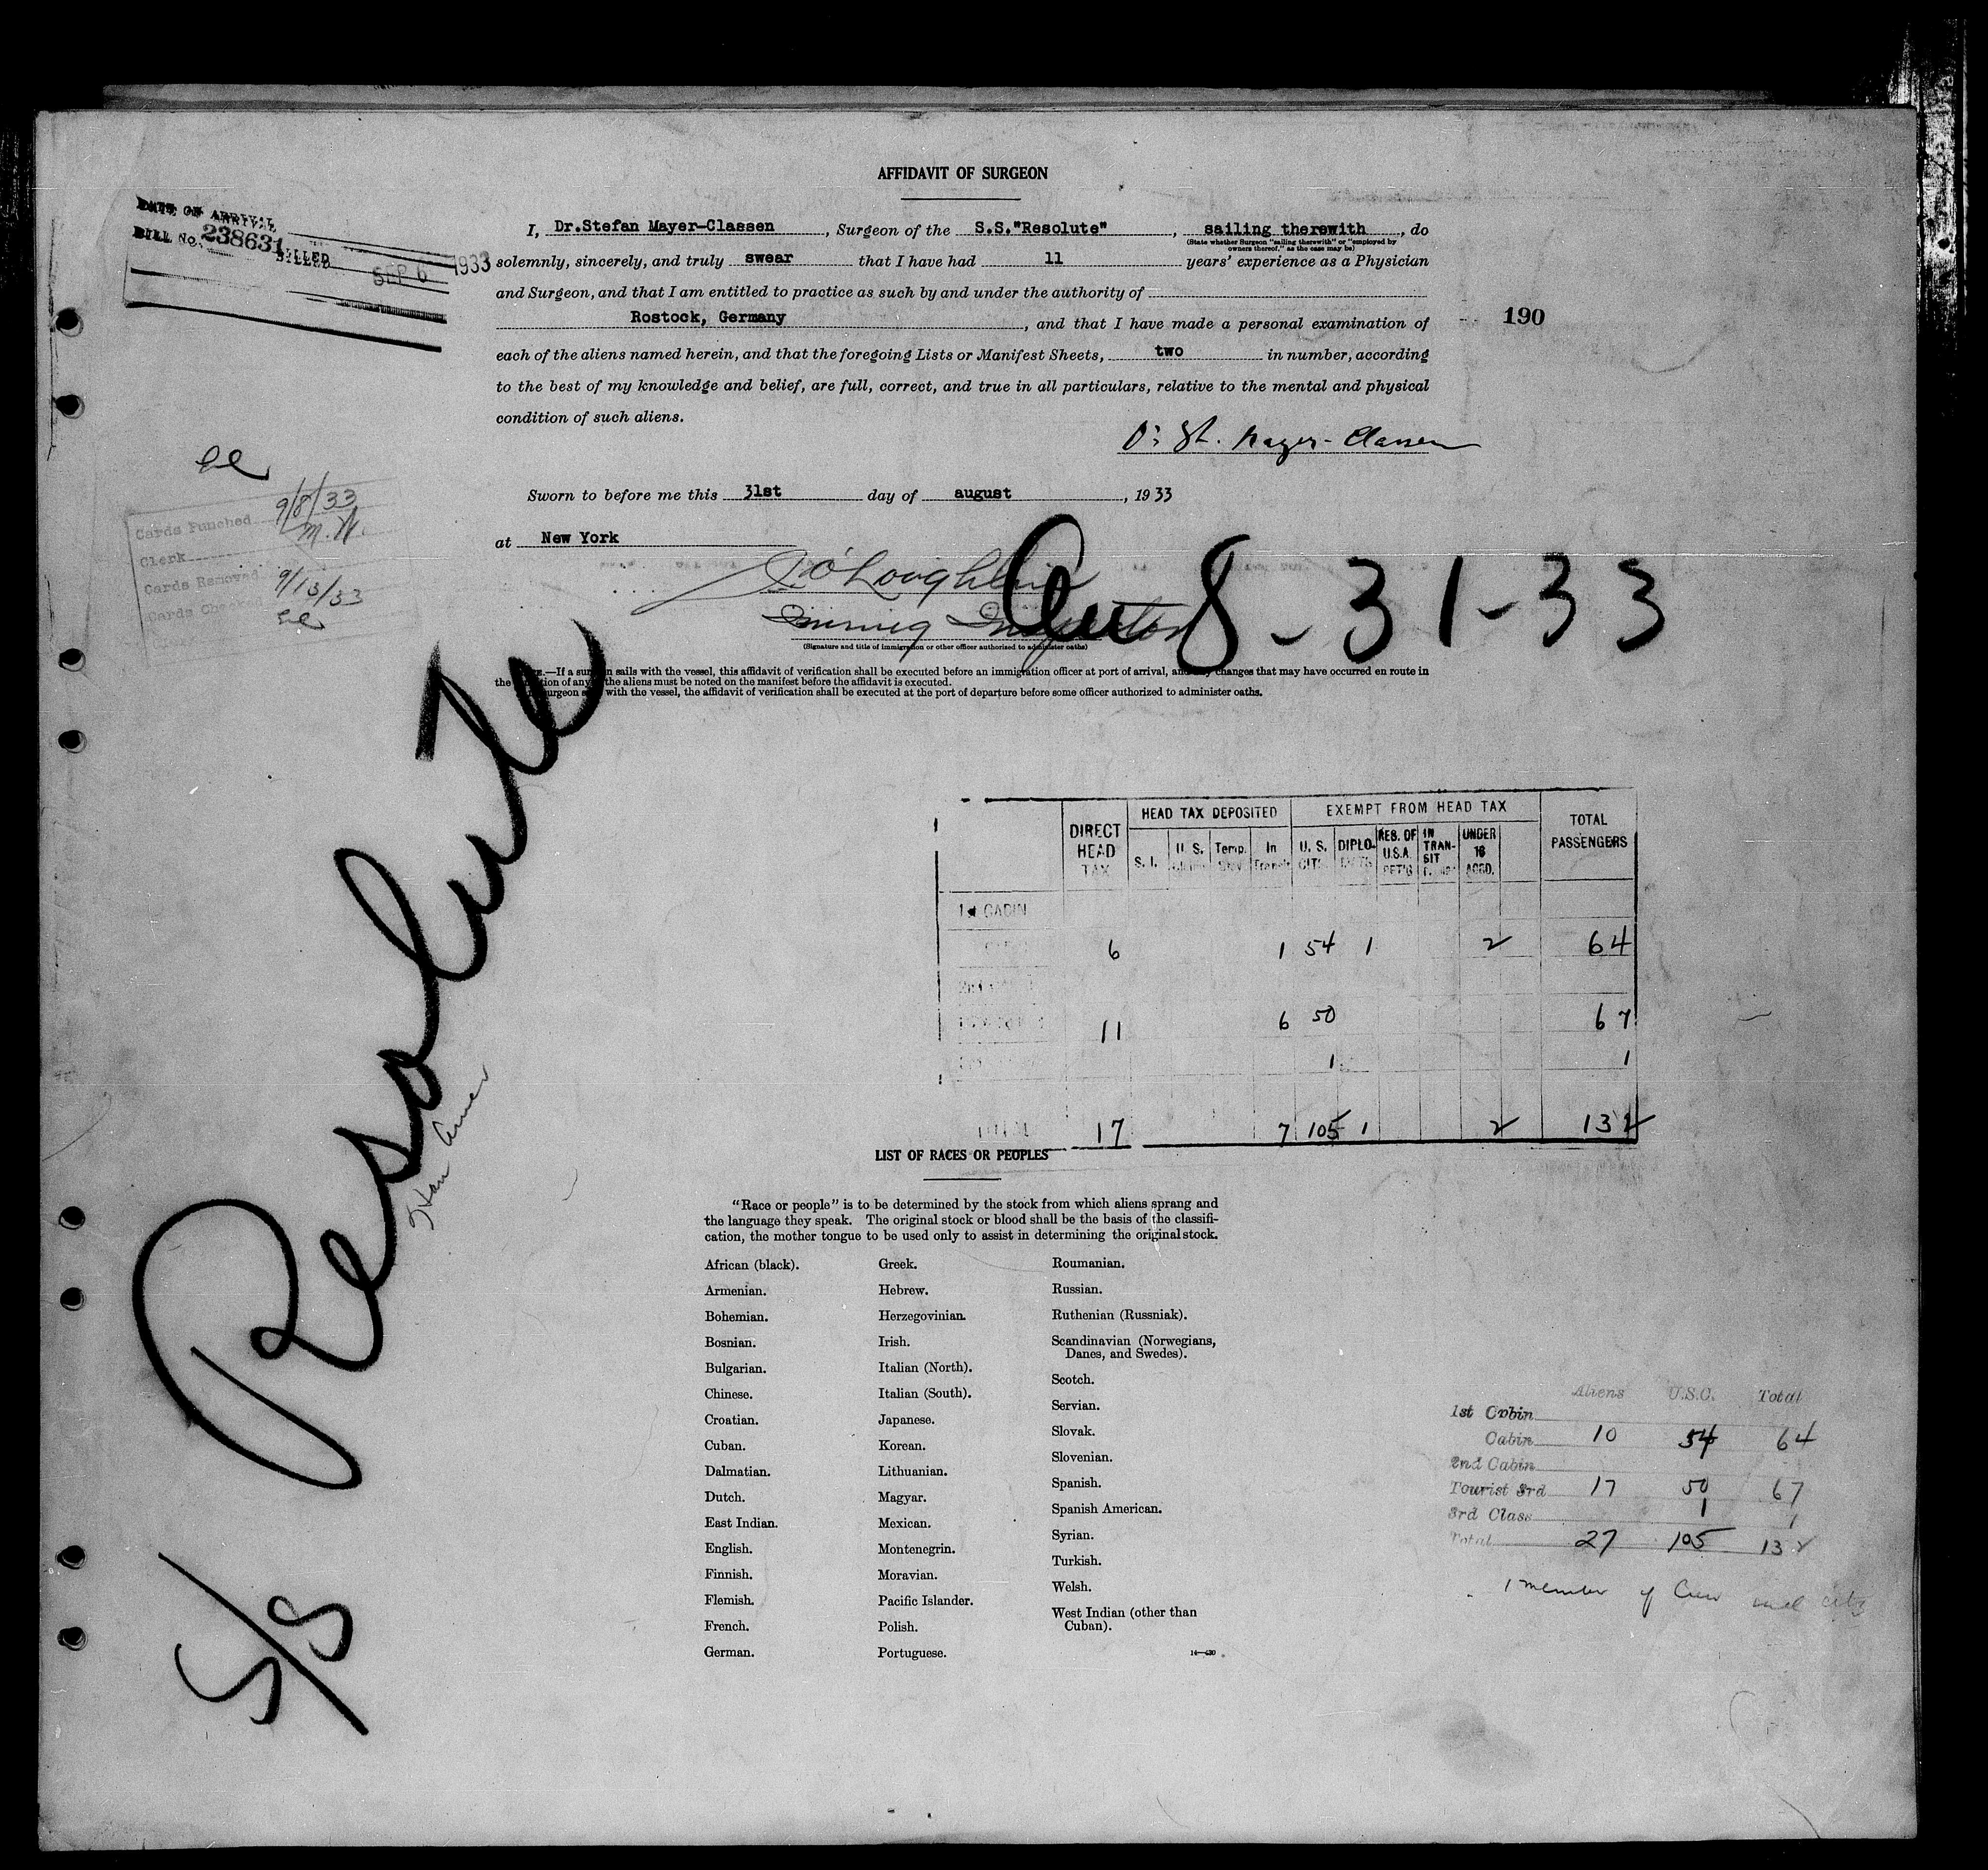 AFFIDAVIT OF SURGEON
DATE OF ARRIVAL
BILL No. 238631
BILLED SEP 6 1933
I, Dr.Stefan Mayer-Classen, Surgeon of the S.S."Resolute", sailing therewith, do
(State whether Surgeon "sailing therewith" or "employed by
owners thereof," as the case may be)
solemnly, sincerely, and truly swear that I have had 11 years' experience as a Physician
and Surgeon, and that I am entitled to practice as such by and under the authority of
Rostock, Germany, and that I have made a personal examination of
190
each of the aliens named herein, and that the foregoing Lists or Manifest Sheets, two in number, according
to the best of my knowledge and belief, are full, correct, and true in all particulars, relative to the mental and physical
condition of such aliens.
Dr St. Mayer-Classen
Sworn to before me this 31st day of august, 1933
at New York
Cards Punched 9/8/33
Clerk M.W.
Cards Removed 9/13/33
Cards Checked
O'Loughlin
Immig Inspector
8-31-33
(Signature and title of immigration or other officer authorized to administer oaths)
.—If a surgeon sails with the vessel, this affidavit of verification shall be executed before an immigration officer at port of arrival, and any changes that may have occurred en route in
the condition of any of the aliens must be noted on the manifest before the affidavit is executed.
surgeon with the vessel, the affidavit of verification shall be executed at the port of departure before some officer authorized to administer oaths.
S/S Resolute
Ham Amer
DIRECT HEAD TAX
HEAD TAX DEPOSITED
EXEMPT FROM HEAD TAX
TOTAL PASSENGERS
S. I. U. S. Temp. In Transit U. S. CIT. DIPLO- RES. OF U.S.A. RET'G IN TRAN-SIT UNDER 16 ACCD.
1st CABIN
6 1 54 1 2 64
11 6 50 67
1 1
TOTAL 17 7 105 1 2 132
LIST OF RACES OR PEOPLES
"Race or people" is to be determined by the stock from which aliens sprang and
the language they speak. The original stock or blood shall be the basis of the classifi-
cation, the mother tongue to be used only to assist in determining the original stock.
African (black).
Armenian.
Bohemian.
Bosnian.
Bulgarian.
Chinese.
Croatian.
Cuban.
Dalmatian.
Dutch.
East Indian.
English.
Finnish.
Flemish.
French.
German.
Greek.
Hebrew.
Herzegovinian.
Irish.
Italian (North).
Italian (South).
Japanese.
Korean.
Lithuanian.
Magyar.
Mexican.
Montenegrin.
Moravian.
Pacific Islander.
Polish.
Portuguese.
Roumanian.
Russian.
Ruthenian (Russniak).
Scandinavian (Norwegians,
Danes, and Swedes).
Scotch.
Servian.
Slovak.
Slovenian.
Spanish.
Spanish American.
Syrian.
Turkish.
Welsh.
West Indian (other than
Cuban).
Aliens U.S.C. Total
1st Cabin
Cabin 10 54 64
2nd Cabin
Tourist 3rd 17 50 67
3rd Class 1 1
Total 27 105 132
1 member of Crew